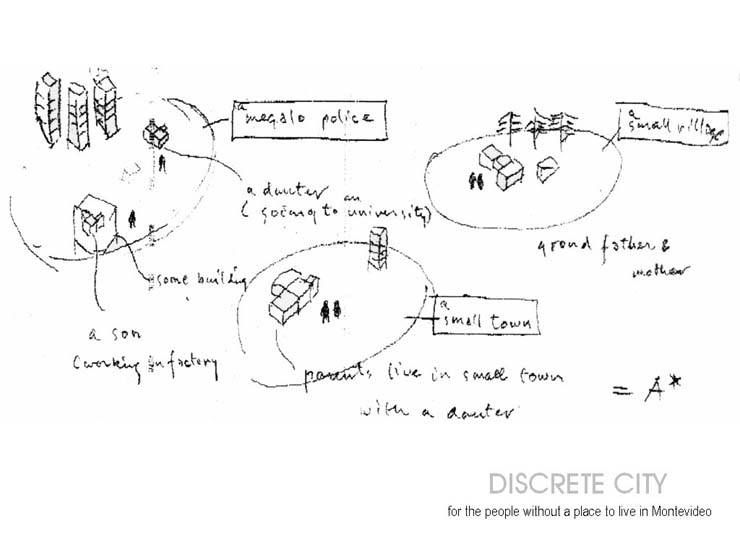 a
megalo police
a dauter
( goeing to an university)
some building
a son
(working in factory
a
small village
grond father &
mother
a
small town
parents live in small town
with a dauter
= A*
DISCRETE CITY
for the people without a place to live in Montevideo